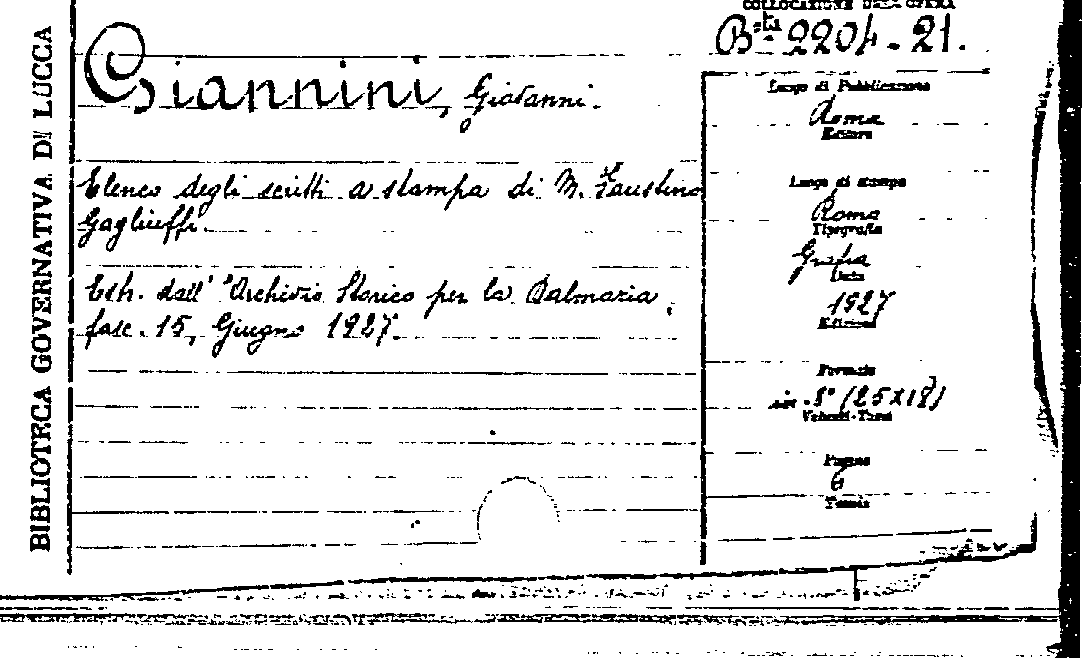 BIBLIOTECA GOVERNATIVA DI LUCCA
COLLOCAZIONE DELL'OPERA
B.ta 2204-21.
Giannini, Giovanni.
Elenco degli scritti a stampa di M. Faustino
Gagliuffi.
Estr. dall' "Archivio Storico per la Dalmazia,
fasc. 15, Giugno 1927.
Luogo di Pubblicazione
Roma
Editore
Luogo di stampa
Roma
Tipografia
Data
1927
Edizione
Formato
in-8° (25x18)
Volumi-Tomi
Pagine
6
Tavole